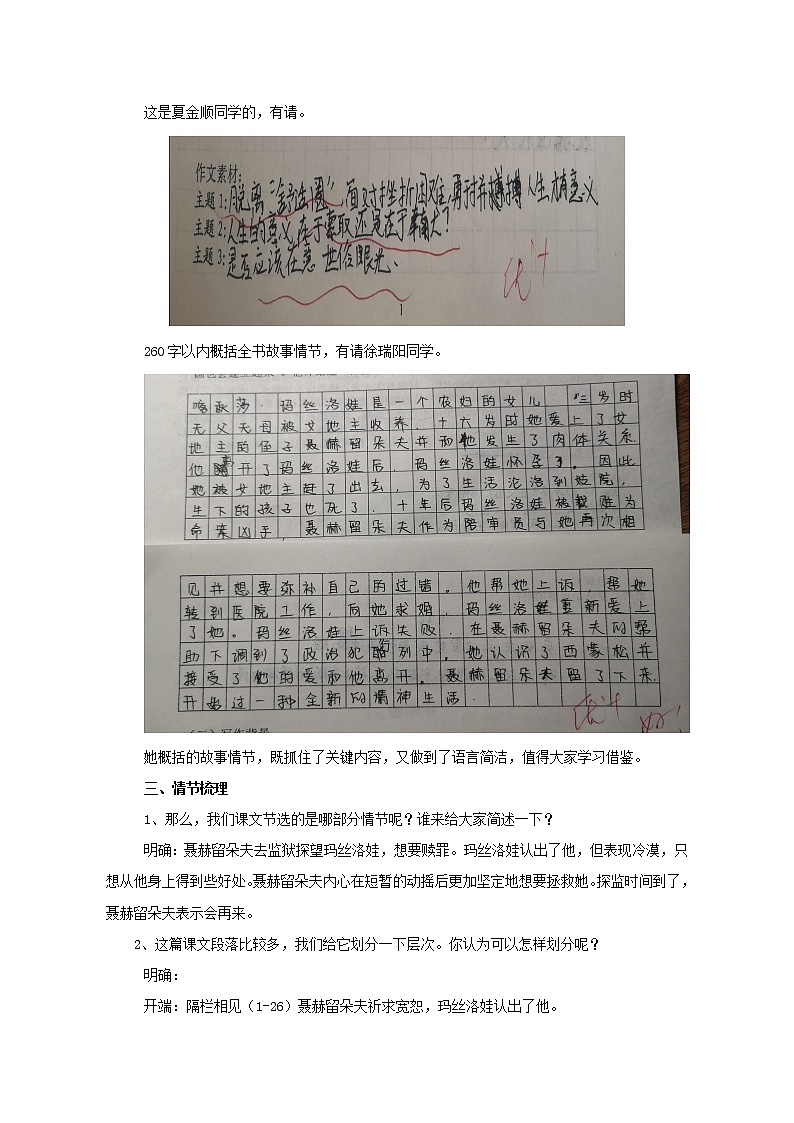 这是夏金顺同学的，有请。
作文素材：
主题1：脱离“舒适圈”，面对挫折困难，勇于拼搏 人生才有意义
主题2：人生的意义在于索取还是在于奉献？
主题3：是否应该在意世俗眼光、
优++
1
260字以内概括全书故事情节，有请徐瑞阳同学。
喀秋莎·玛丝洛娃是一个农妇的女儿 三岁时
无父无母被女地主收养．十六岁时她爱上了女
地主的侄子聂赫留朵夫并和他发生了肉体关系．
他离开了玛丝洛娃后．玛丝洛娃怀孕了。因此
她被女地主赶了出去，为了生活沦落到妓院，
生下的孩子也死了．十年后玛丝洛娃被栽赃为
命案凶手，聂赫留朵夫作为陪审员与她再次相
见并想要弥补自己的过错。他帮她上诉 帮她
转到医院工作，向她求婚．玛丝洛娃重新爱上
了她。玛丝洛娃上诉失败．在聂赫留朵夫的帮
助下调到了政治犯行列中。她认识了西蒙松并
接受了他的爱和他离开。聂赫留朵夫留了下来．
开始过一种全新的精神生活．
优++ 好！
她概括的故事情节，既抓住了关键内容，又做到了语言简洁，值得大家学习借鉴。
三、情节梳理
1、那么，我们课文节选的是哪部分情节呢？谁来给大家简述一下？
明确：聂赫留朵夫去监狱探望玛丝洛娃，想要赎罪。玛丝洛娃认出了他，但表现冷漠，只
想从他身上得到些好处。聂赫留朵夫内心在短暂的动摇后更加坚定地想要拯救她。探监时间到了，
聂赫留朵夫表示会再来。
2、这篇课文段落比较多，我们给它划分一下层次。你认为可以怎样划分呢？
明确：
开端：隔栏相见（1-26）聂赫留朵夫祈求宽恕，玛丝洛娃认出了他。